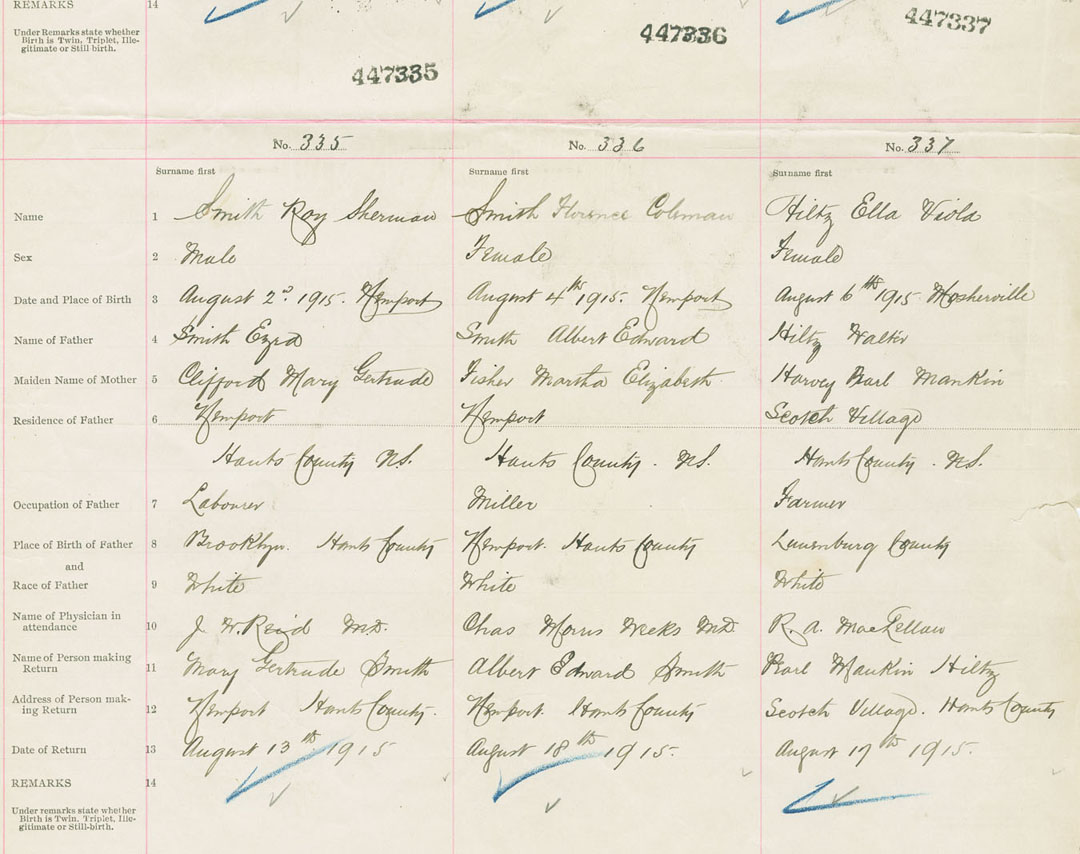 REMARKS 14
Under Remarks state whether
Birth is Twin, Triplet, Ille-
gitimate or Still-birth.
447335
447336
447337
No. 335 No. 336 No. 337
Surname first Surname first Surname first
Name 1 Smith Roy Sherman Smith Florence Coleman Hiltz Ella Viola
Sex 2 Male Female Female
Date and Place of Birth 3 August 2d. 1915. Newport August 4th 1915. Newport August 6th 1915 Mosherville
Name of Father 4 Smith Ezra Smith Albert Edward Hiltz Walter
Maiden Name of Mother 5 Clifford Mary Gertrude Fisher Martha Elizabeth Harvey Pearl Mankin
Residence of Father 6 Newport Newport Scotch Village
Hants County N.S. Hants County. N.S. Hants County. N.S.
Occupation of Father 7 Labourer Miller Farmer
Place of Birth of Father 8 Brooklyn. Hants County Newport. Hants County Lunenburg County
and
Race of Father 9 White White White
Name of Physician in
attendance 10 J. W. Reid M.D. Chas Morris Weeks M.D. R. A. MacLellan
Name of Person making
Return 11 Mary Gertrude Smith Albert Edward Smith Pearl Mankin Hiltz
Address of Person mak-
ing Return 12 Newport Hants County. Newport. Hants County Scotch Village. Hants County
Date of Return 13 August 13th 1915 August 18th 1915. August 17th 1915.
REMARKS 14
Under remarks state whether
Birth is Twin, Triplet, Ille-
gitimate or Still-birth.